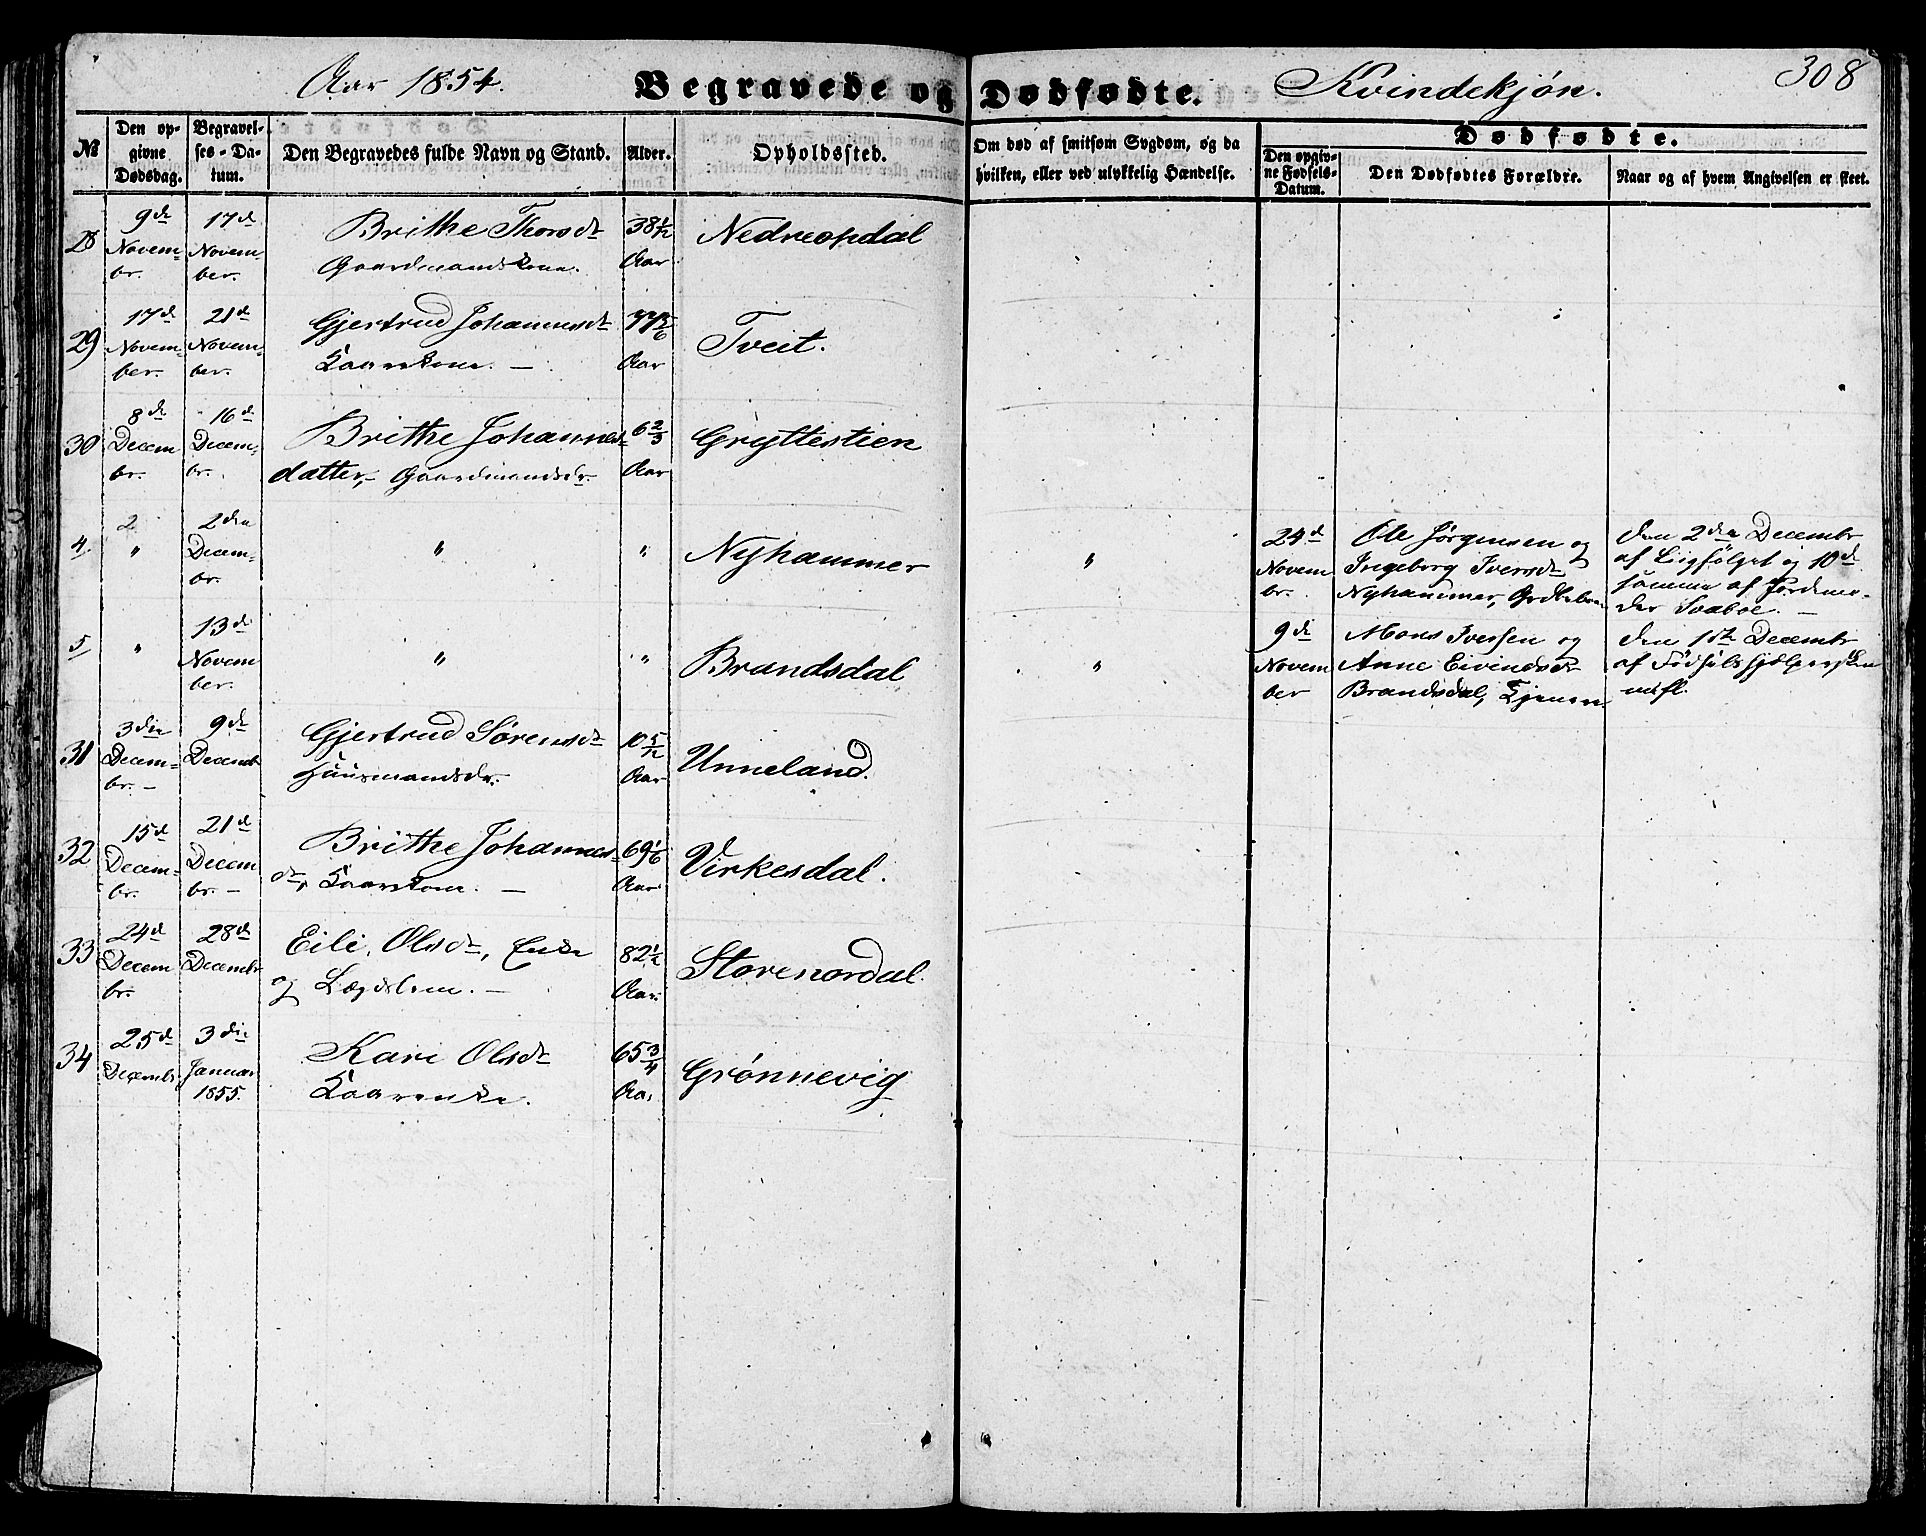 Aar 1854. Begravede og Dødfødte. Kvindekjøn. 308
№
Den op-
givne
Dødsdag.
Begravel-
ses-Da-
tum.
Den Begravedes fulde Navn og Stand.
Alder.
Opholdssted.
Om død af smitsom Sygdom, og da
hvilken, eller ved ulykkelig Hændelse.
Dødfødte.
Den opgiv-
ne Fødsels-
Datum.
Den Dødfødtes Forældre.
Naar og af hvem Angivelsen er skeet.
28
9de
Novem-
br.
17de
Novem-
ber.
Brithe Thorsdtr
Gaardmandskone.
38½
Aar
Nedreopdal
29
17de
Novem-
ber.
21de
Novem-
ber.
Gjertrud Johannesdtr
Kaarskone. —
77 5/6
Aar
Tveit.
30
8de
Decem
br.
16de
Decem-
br.
Brithe Johannes-
datter, Gaardmandsdr.
6 2/3
Aar
Gryttestien
4
"
2den
Decem-
br.
"
"
Nyhammer
"
24de
Novem
br.
Ole Jørgensen og
Ingeborg Iversdtr
Nyhammer,
den 2den Decembr
af Liigfølget og 10de
samme af Jordemo-
der
5
"
13de
Novem
ber.
"
"
Brandsdal
"
9de
Novem
ber
Mons Iversen og
Anne Eivindsdr
Brandsdal,
den 1ste Decembr
af Fødselshjelpersken
31
3die
Decem-
br. —
9de
Decembr
Gjertrud Sørensdtr
Huusmandsdr.
10 5/12
Aar
Unneland.
32
15de
Decem-
br.
21de
Decem
br. —
Brithe Johannes-
dtr, Kaarskone. —
69 1/6
Aar
Virkesdal.
33
24de
Decem
br.
28de
Decembr
Eili Olsdtr, Enke
og Lægdslem. —
82½
Aar.
Storenordal.
34
25de
Decembr
3die
Januar
1855.
Kari Olsdtr
Kaarenke.
65 3/4
Aar
Grønnevig